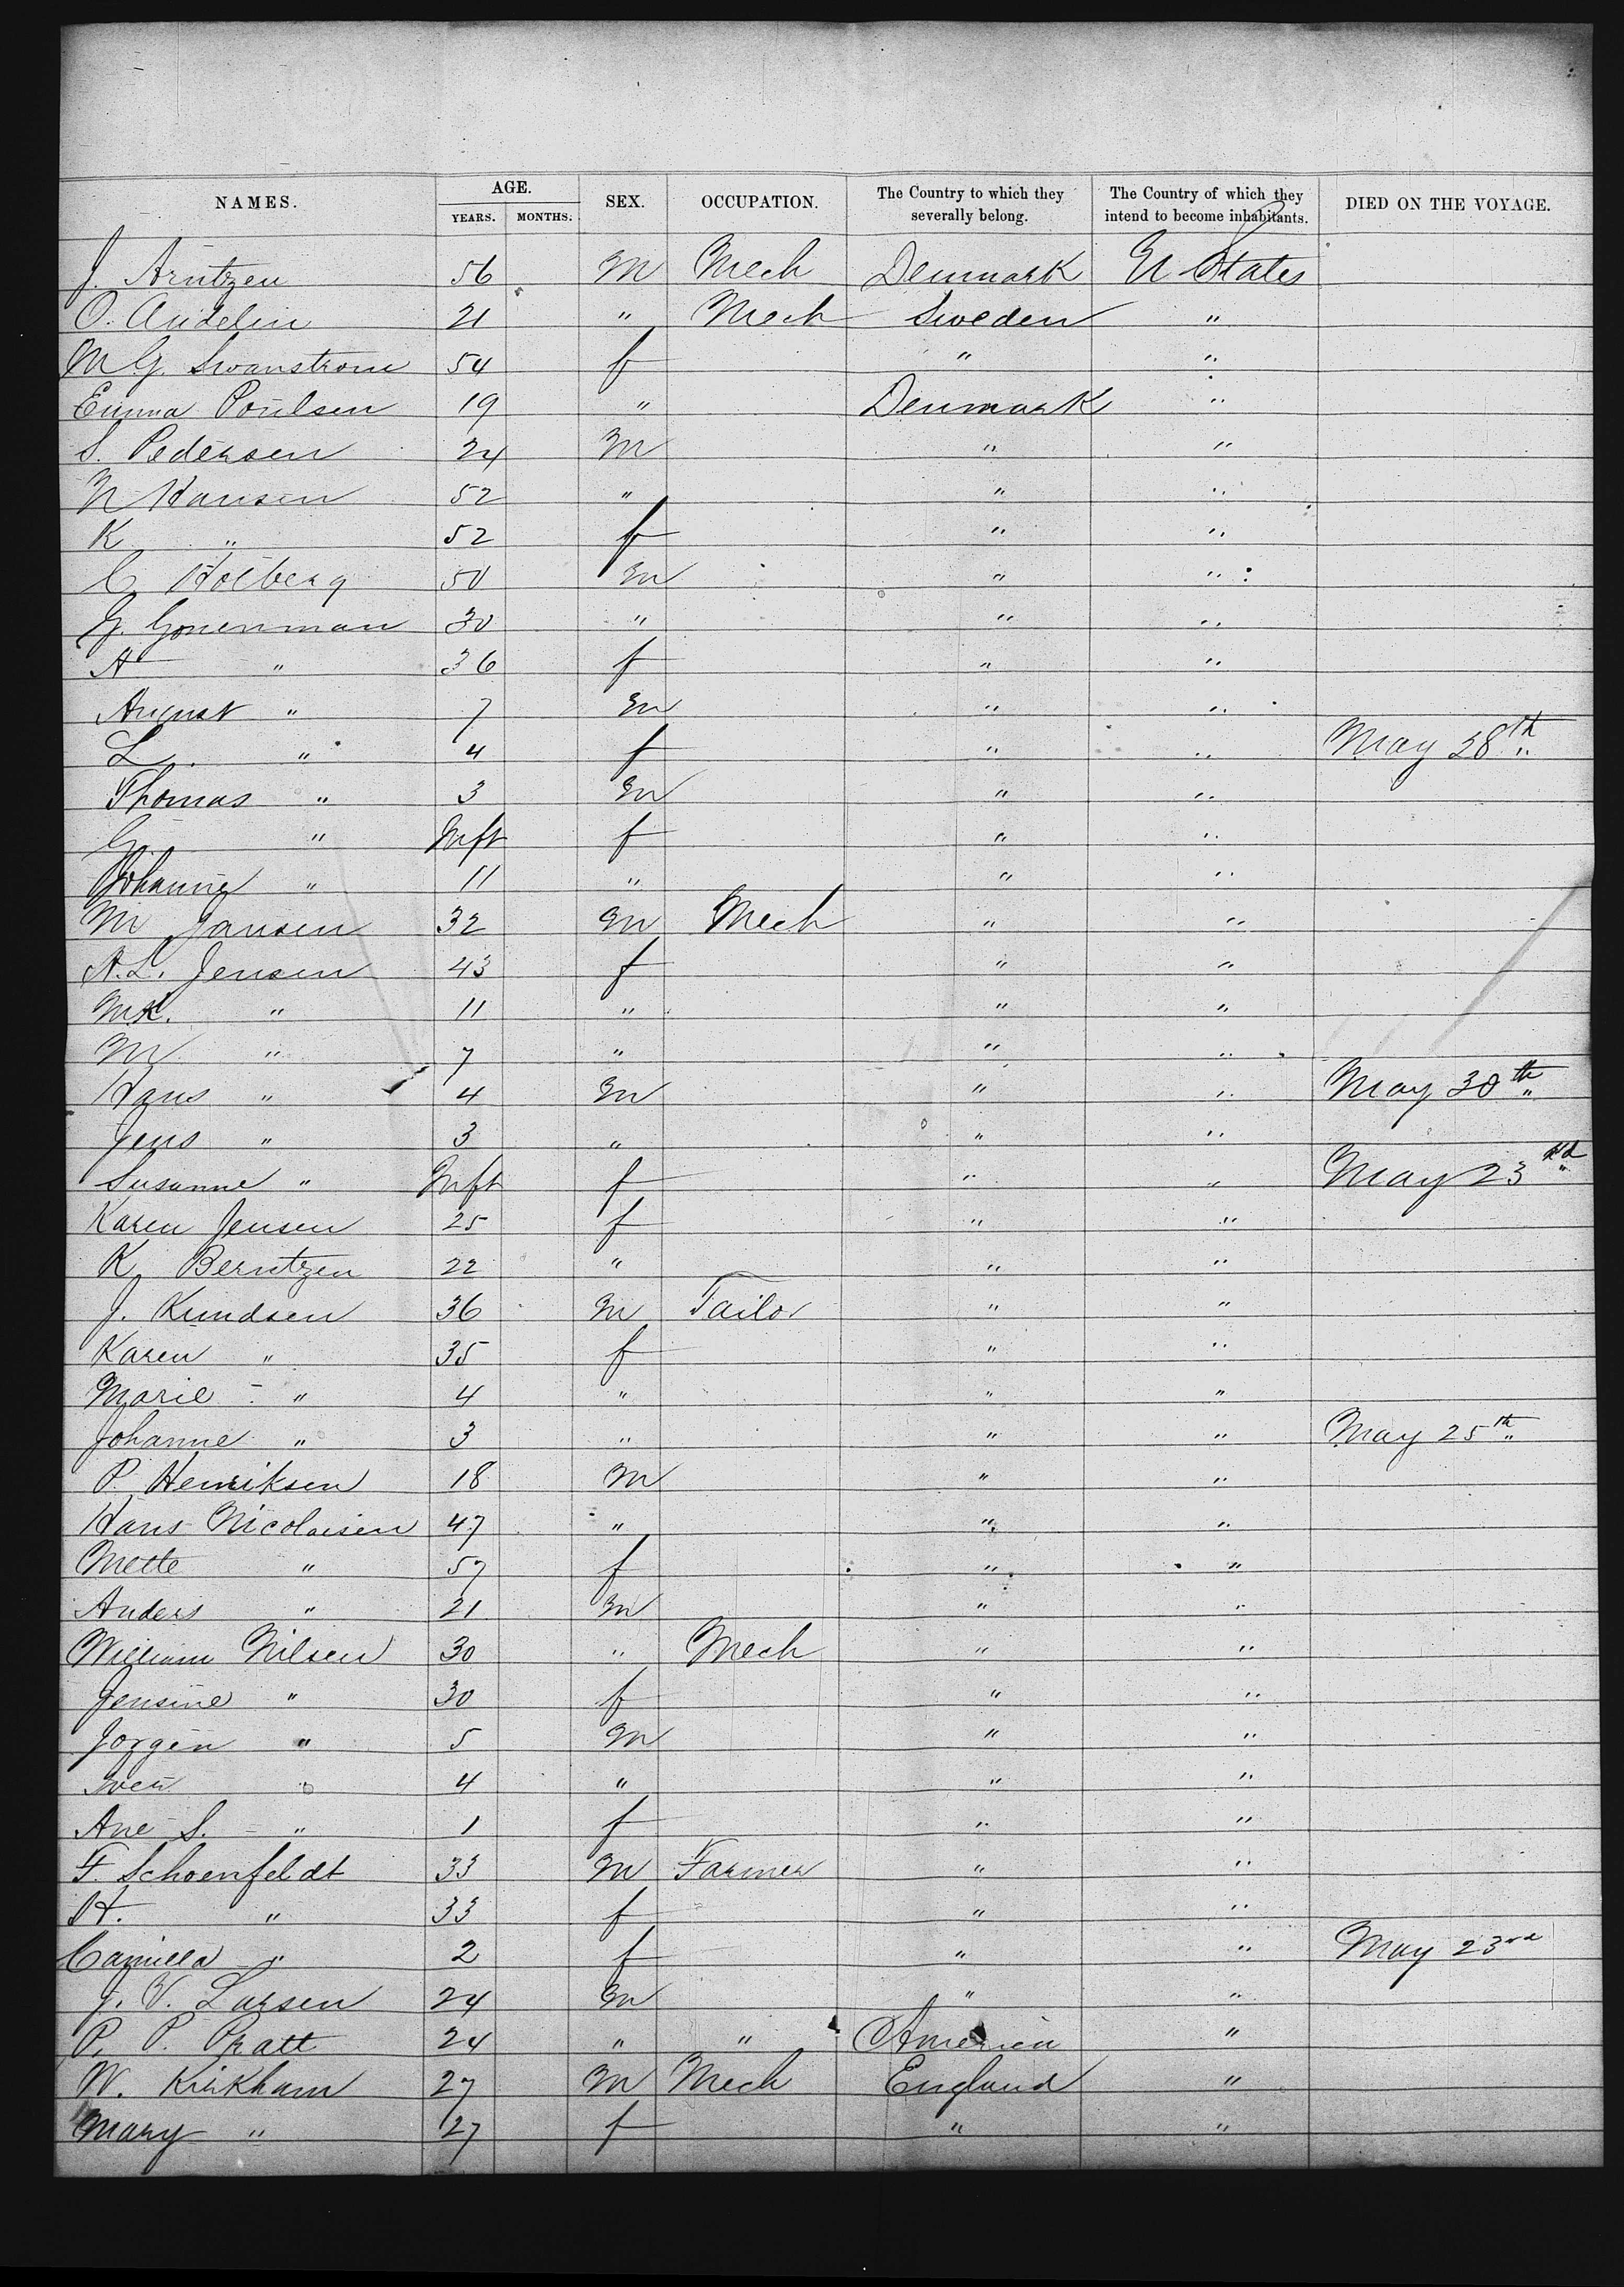 NAMES. AGE. YEARS. MONTHS. SEX. OCCUPATION. The Country to which they severally belong. The Country of which they intend to become inhabitants. DIED ON THE VOYAGE.
J. Arntzen 56 M Mech Denmark U States
O. Andelin 21 " Mech Sweden "
M G. Swanstrom 54 f " "
Emma Poulsen 19 " Denmark "
S. Pedersen 24 M " "
N Hansen 52 " " "
K " 52 f " "
C. Holberg 50 M " "
G. 30 " " "
A " 36 f " "
August " 7 M " "
L. " 4 f " " May 28th "
Thomas " 3 M " "
G " Inft f " "
Johanne " 11 " " "
M Jansen 32 M Mech " "
A. L. Jensen 43 f " "
M K. " 11 " " "
M " 7 " " "
Hans " 4 M " " May 30th "
Jens " 3 " " "
Susanne " Inft f " " May 23rd "
Karen Jensen 25 f " "
K Berntzen 22 " " "
J. Kundsen 36 M Tailor " "
Karen " 35 f " "
Marie " 4 " " "
Johanne " 3 " " " May 25th "
P. Henriksen 18 M " "
Hans Nicolaisen 47 " " "
Mette " 57 f " "
Anders " 21 M " "
William Nilsen 30 " Mech " "
Jensine " 30 f " "
Jorgen " 5 M " "
Sven " 4 " " "
Ane S. " 1 f " "
F. Schoenfeldt 33 M Farmer " "
H. " 33 f " "
Camilla " 2 f " " May 23rd
J. V. Larsen 24 M " "
P. P. Pratt 24 " " America "
W. Kirkham 27 M Mech England "
Mary " 27 f " "